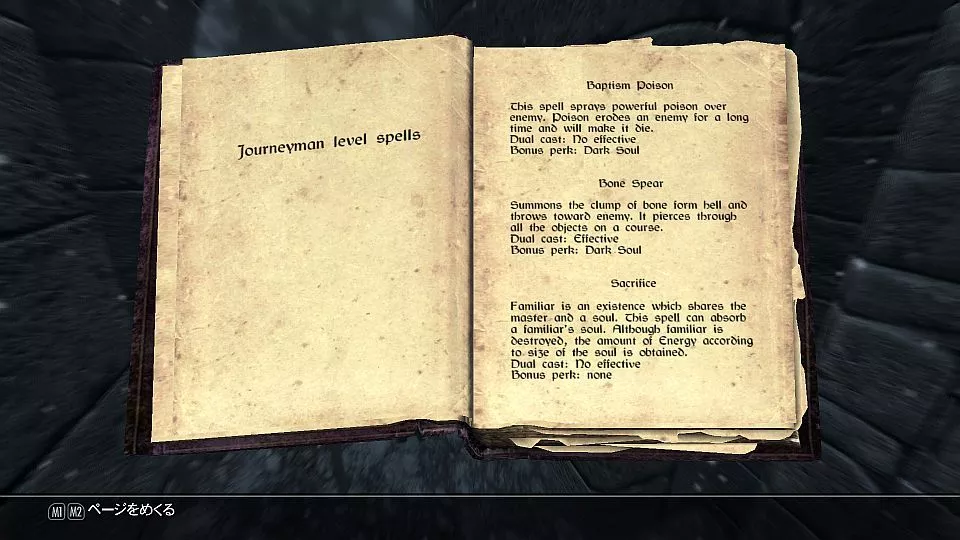 Journeyman level spells
Baptism Poison
This spell sprays powerful poison over
enemy. Poison erodes an enemy for a long
time and will make it die.
Dual cast: No effective
Bonus perk: Dark Soul
Bone Spear
Summons the clump of bone form hell and
throws toward enemy. It pierces through
all the objects on a course.
Dual cast: Effective
Bonus perk: Dark Soul
Sacrifice
Familiar is an existence which shares the
master and a soul. This spell can absorb
a familiar's soul. Although familiar is
destroyed, the amount of Energy according
to size of the soul is obtained.
Dual cast: No effective
Bonus perk: none
M1 M2 ページをめくる